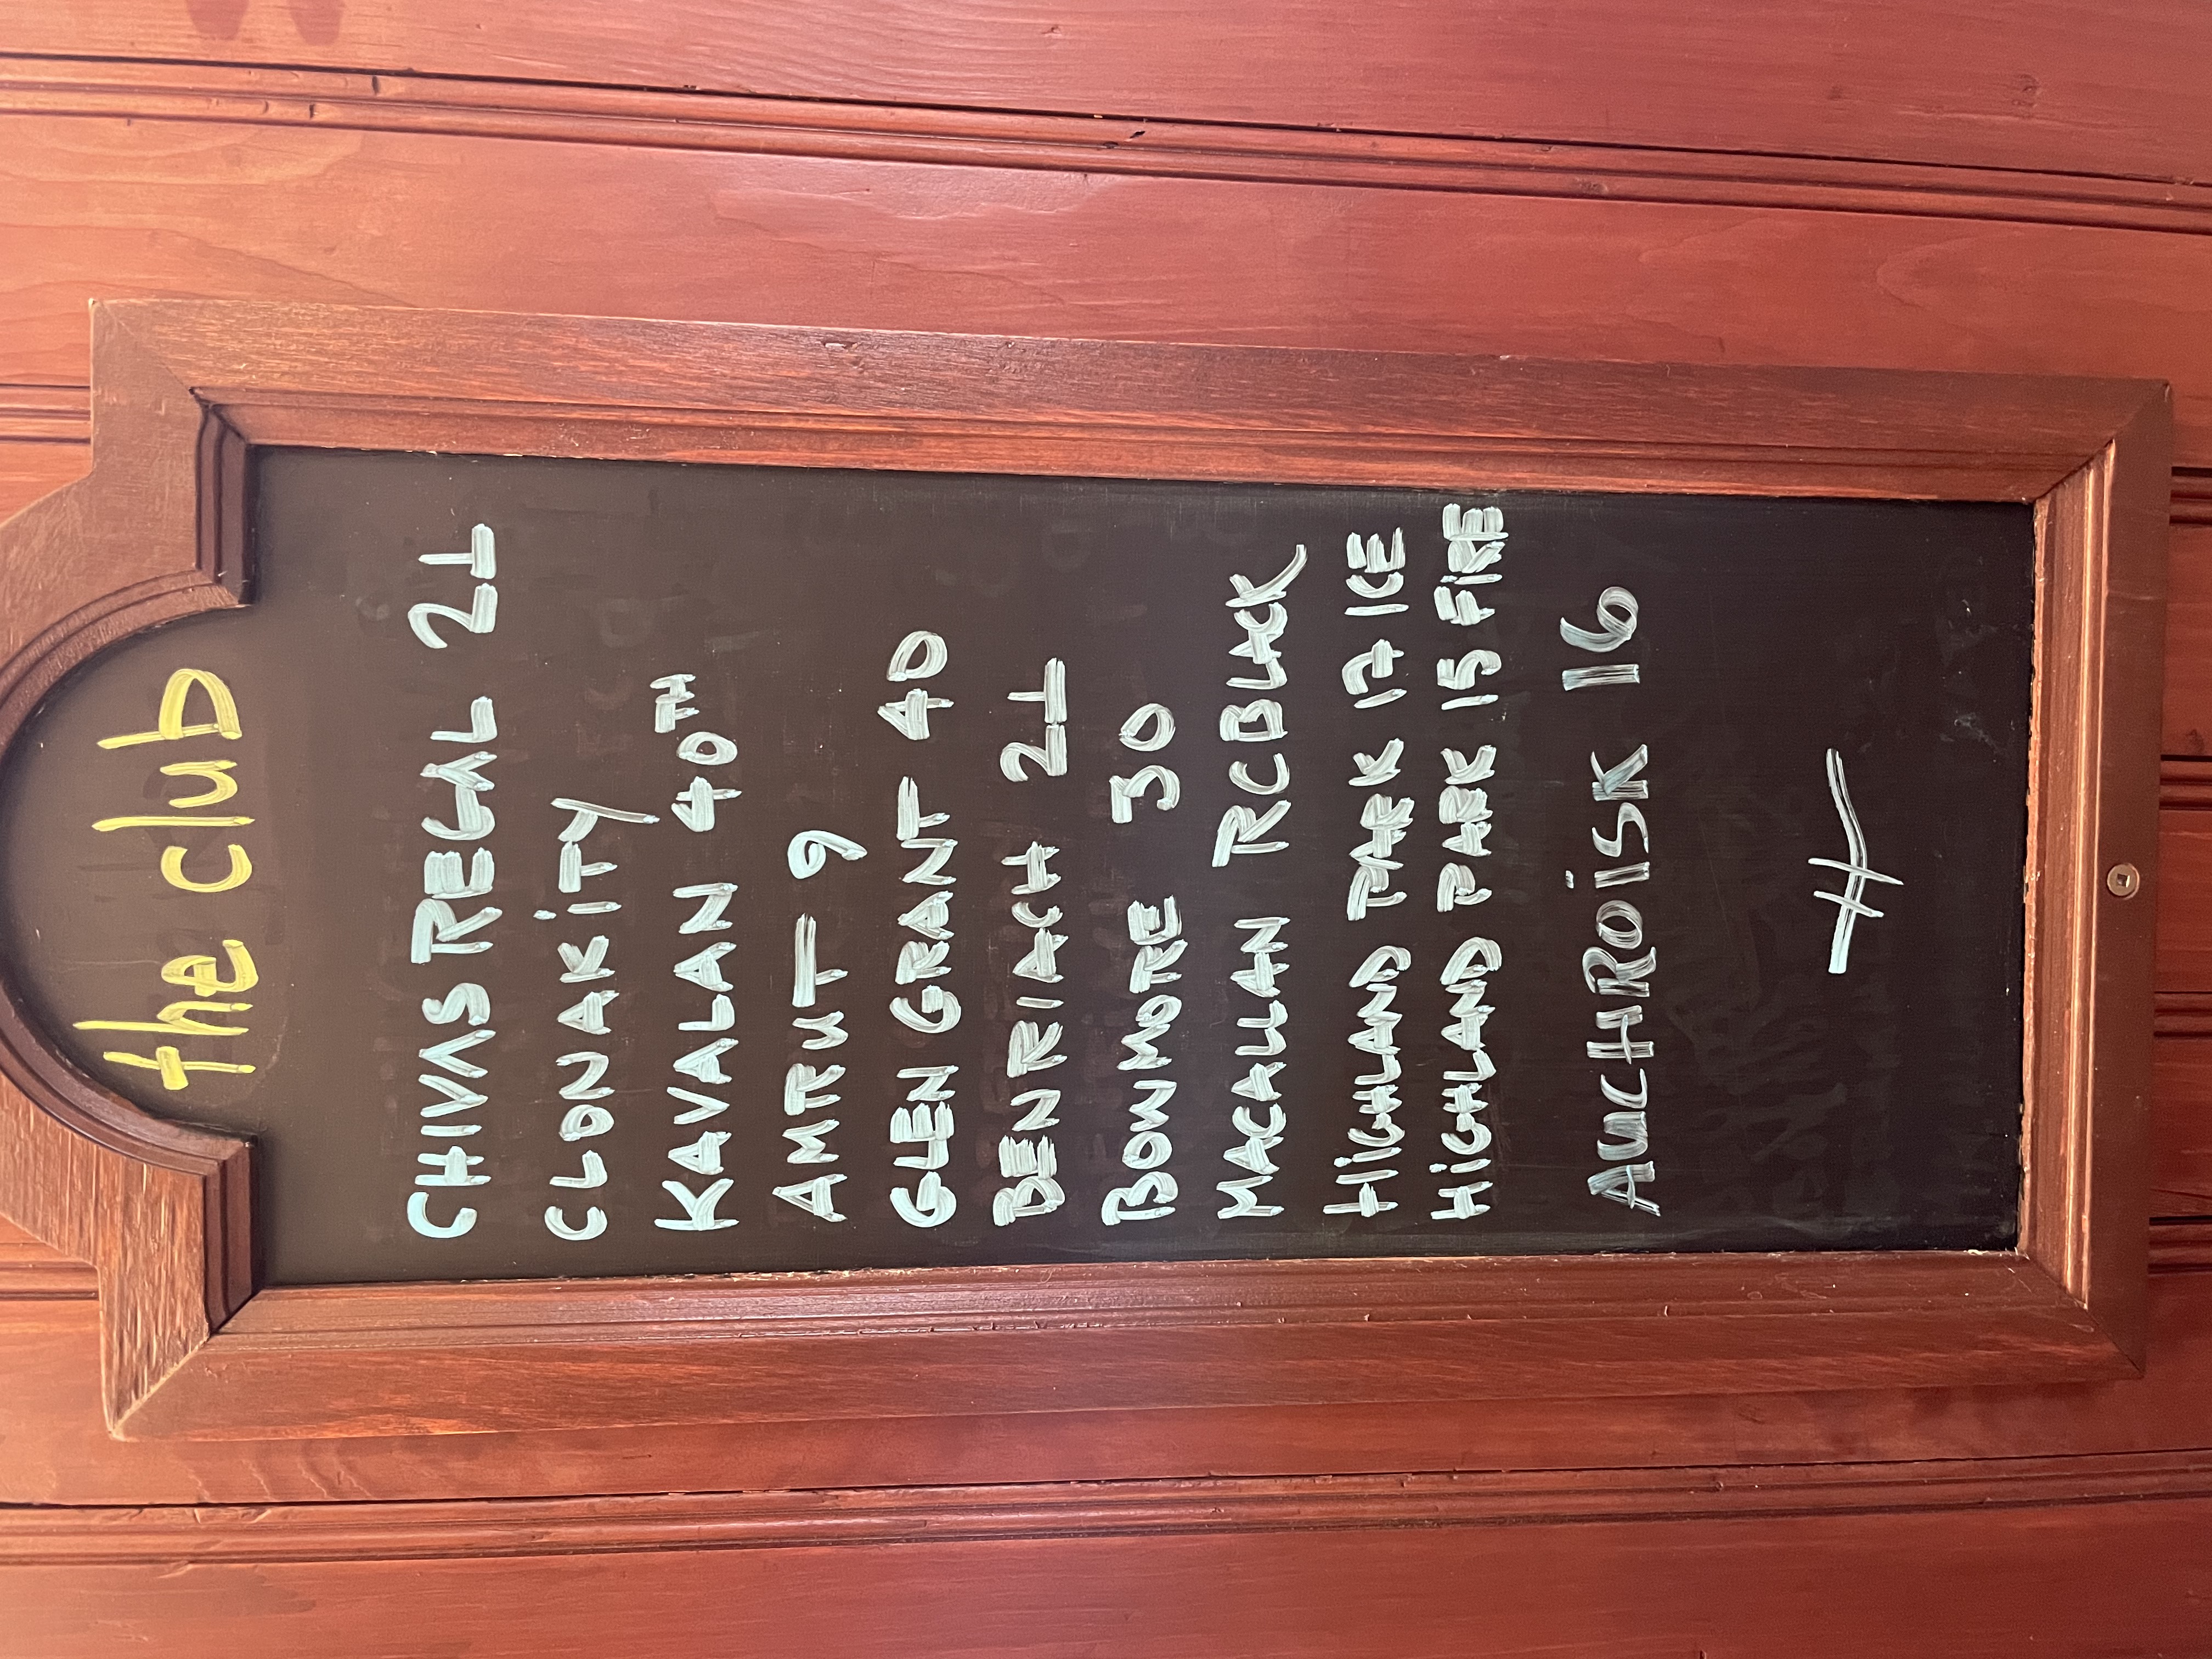 the club
CHIVAS REGAL 21
CLONAKiTY
KAVALAN 40TH
AMRUT 9
GLEN GRANT 40
BENRIACH 21
BOWMORE 30
MACALLAN RCBLACK
HiGHLAND PARK 17 ICE
HiGHLAND PARK 15 FiRE
AUCHROiSK 16